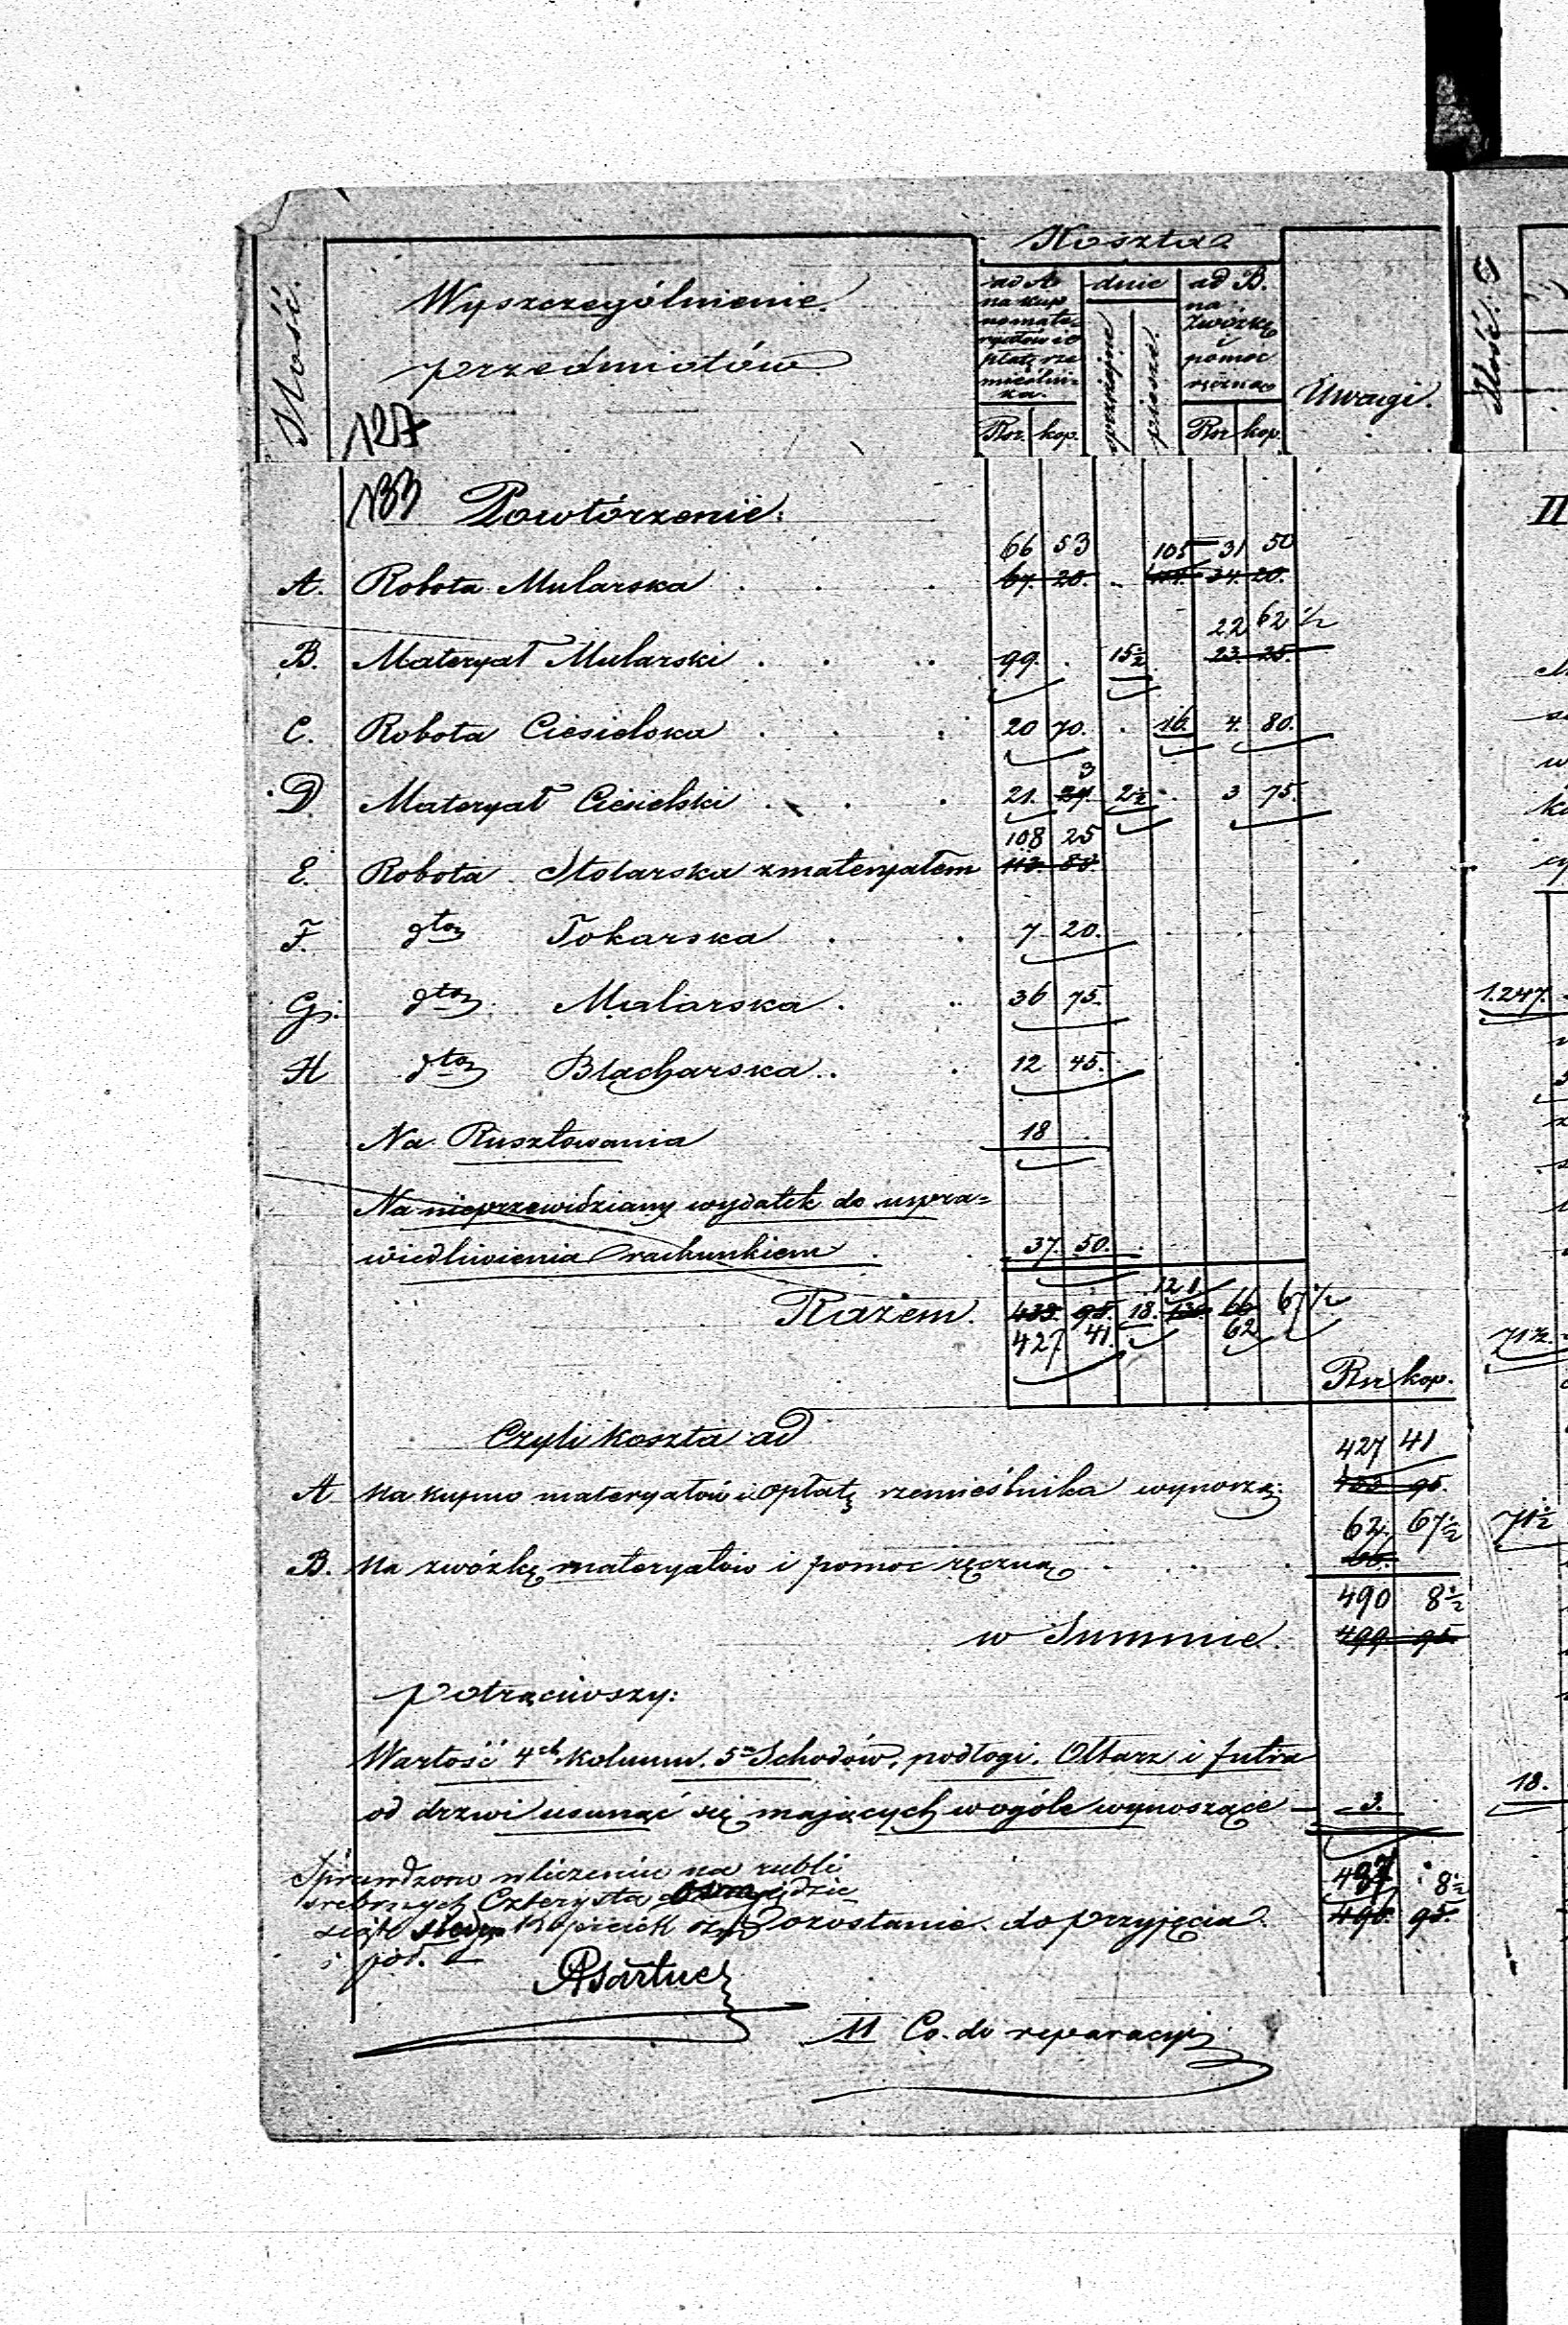 Ilość.
Wyszczególnienie
przedmiotów
Koszta
ad A
na kup
no mate-
ryałów i o
płatę rze
mieślni-
ka.
dnie
sprzężajne
piesze.
ad B.
na
Zwózkę
i
pomoc
ręczną
Uwagi.
Rsr. kop. Rsr kop.
127
133 Powtórzenie:
66 53 105 31 50
A. Robota Mularska 67. 20. 34. 20.
22 62 ½
B. Materyał Mularski 99. 15½ 23. 25.
C. Robota Ciesielska 20 70. 16. 4. 80.
3
D. Materyał Ciesielski 21. 2½ 3 75.
108 25
E. Robota Stolarska z materyałem 113. 80.
F. dto Tokarska 7 20.
G. dto Malarska 36 75.
H dto Blacharska 12 45.
Na Rusztowania 18
Na nieprzewidziany wydatek do uspra=
wiedliwienia rachunkiem 37. 50.
121
Razem. 433. 95. 18. 66 67½
427 41. 62
Rsr kop.
Czyli koszta ad
427 41
A na kupno materyałów i opłatę rzemieślnika wynoszą: 433 95.
62. 67½
B. na zwózkę materyałów i pomoc ręczną 66.
490 8½
w Summie. 499 95
potrąciwszy:
Wartość 4ch kolumn. 5u Schodów, podłogi, Ołtarz i futra
od drzwi usunąć się mających w ogóle wynoszące — 3.
Sprawdzono w liczeniu na rubli
srebrnych Czterysta ośmdzie
487 8½
siąt siedm kopiejek ośm
i pół.
Pozostanie do przyjęcia. 496. 95.
II Co do reparacyi
Ilość.
II
1.247.
71½
71½
18.